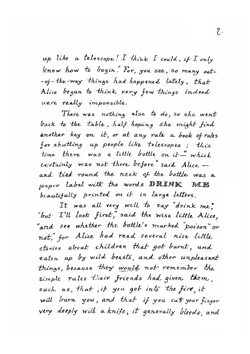 2.
up like a telescope! I think I could, if I only
knew how to begin." For, you see, so many out-
-of-the-way things had happened lately, that
Alice began to think very few things indeed
were really impossible.
There was nothing else to do, so she went
back to the table, half hoping she might find
another key on it, or at any rate a book of rules
for shutting up people like telescopes: this
time there was a little bottle on it—"which
certainly was not there before" said Alice,—
and tied round the neck of the bottle was a
paper label with the words DRINK ME
beautifully printed on it in large letters.
It was all very well to say "drink me,"
"but I'll look first," said the wise little Alice,
"and see whether the bottle's marked "poison" or
not," for Alice had read several nice little
stories about children that got burnt, and
eaten up by wild beasts, and other unpleasant
things, because they would not remember the
simple rules their friends had given them,
such as, that, if you get into the fire, it
will burn you, and that, if you cut your finger
very deeply with a knife, it generally bleeds, and